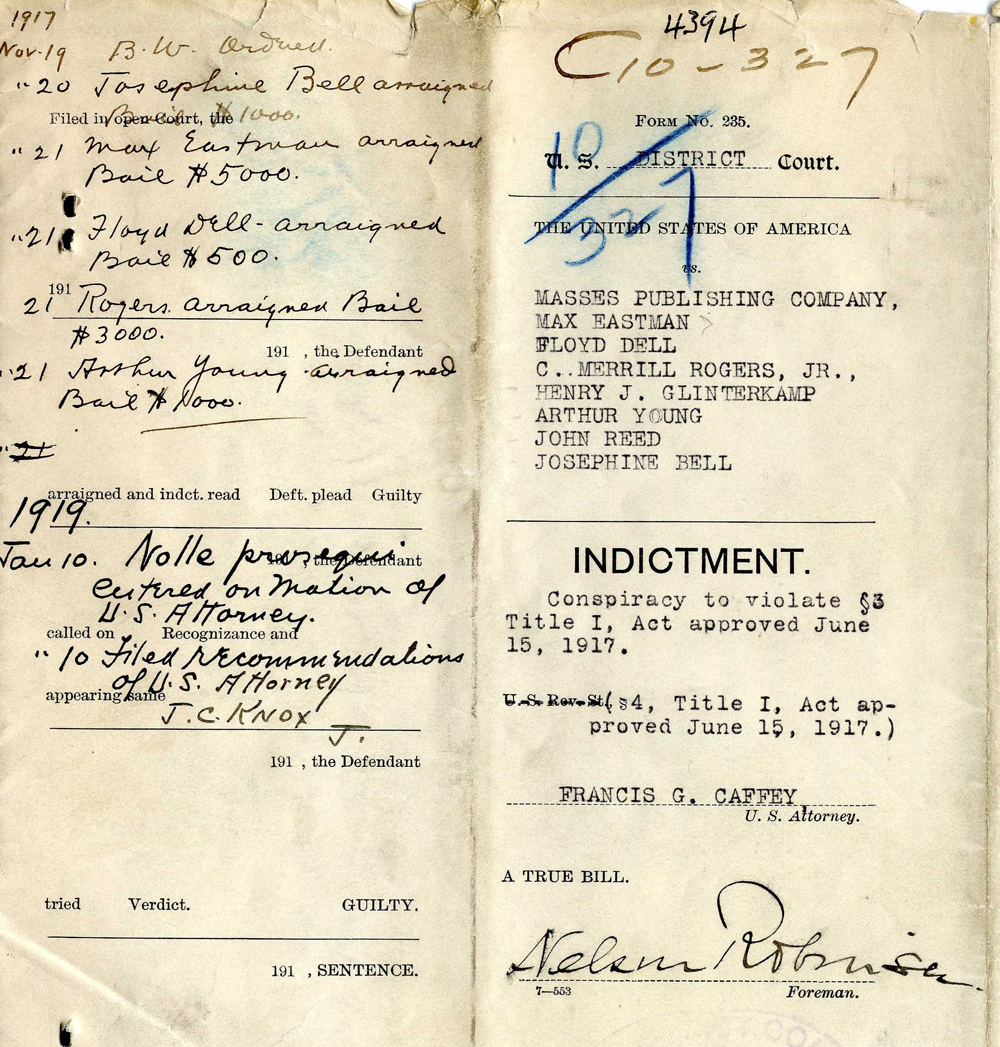 1917
Nov. 19 B.W. Ordered.
" 20 Josephine Bell arraigned
Bail $1000.
Filed in open Court, the
" 21 Max Eastman arraigned
Bail $5000.
" 21 Floyd Dell - arraigned
Bail $500.
191
21 Rogers arraigned Bail
$3000.
191 , the Defendant
" 21 Arthur Young arraigned
Bail $1000.
" 21
arraigned and indct. read Deft. plead Guilty
1919.
191 , the Defendant
Jan 10. Nolle prosequi
entered on Motion of
U.S. Attorney.
called on Recognizance and
" 10 Filed recommendations
of U.S. Attorney
appearing same
J.C. Knox
J.
191 , the Defendant
tried Verdict. GUILTY.
191 , SENTENCE.
4394
C10-327
Form No. 235.
10
U. S. DISTRICT Court.
327
THE UNITED STATES OF AMERICA
vs.
MASSES PUBLISHING COMPANY,
MAX EASTMAN
FLOYD DELL
C..MERRILL ROGERS, JR.,
HENRY J. GLINTERKAMP
ARTHUR YOUNG
JOHN REED
JOSEPHINE BELL
INDICTMENT.
Conspiracy to violate §3
Title I, Act approved June
15, 1917.
U. S. Rev. St. (§4, Title I, Act ap-
proved June 15, 1917.)
FRANCIS G. CAFFEY
U. S. Attorney.
A TRUE BILL.
Nelson Robinson
7—553 Foreman.